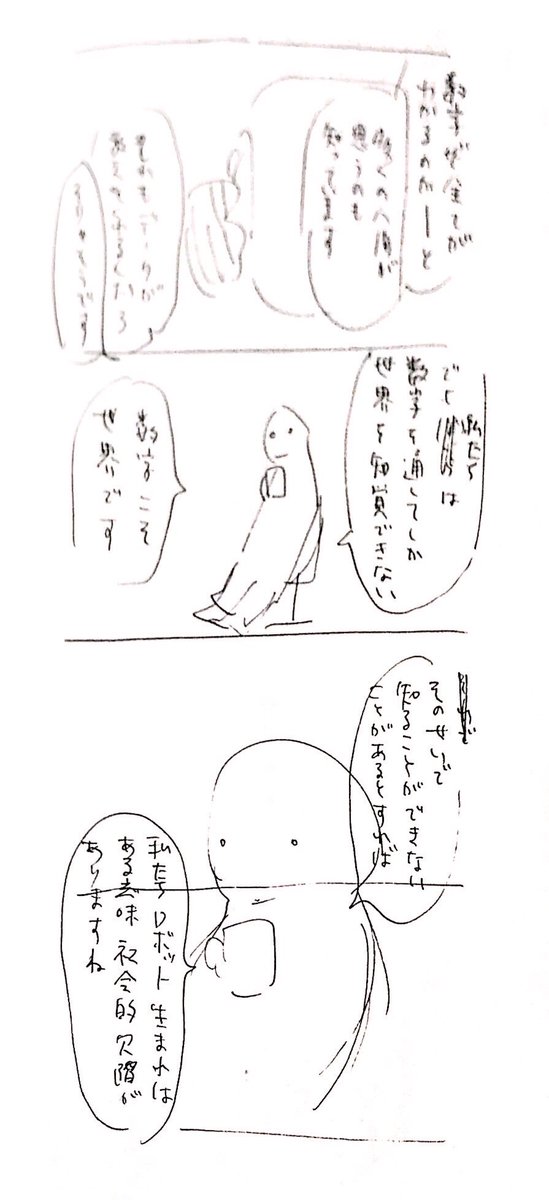 数字で全てが
わかるのかーと
多くの人間が
思うのも
知っています
そうです
でも私たちは
数字を通してしか
世界を知覚できない
数字こそ
世界です
そのせいで
知ることができない
ことがあるとすれば
私たちロボット生まれは
ある意味社会的欠陥が
ありますね